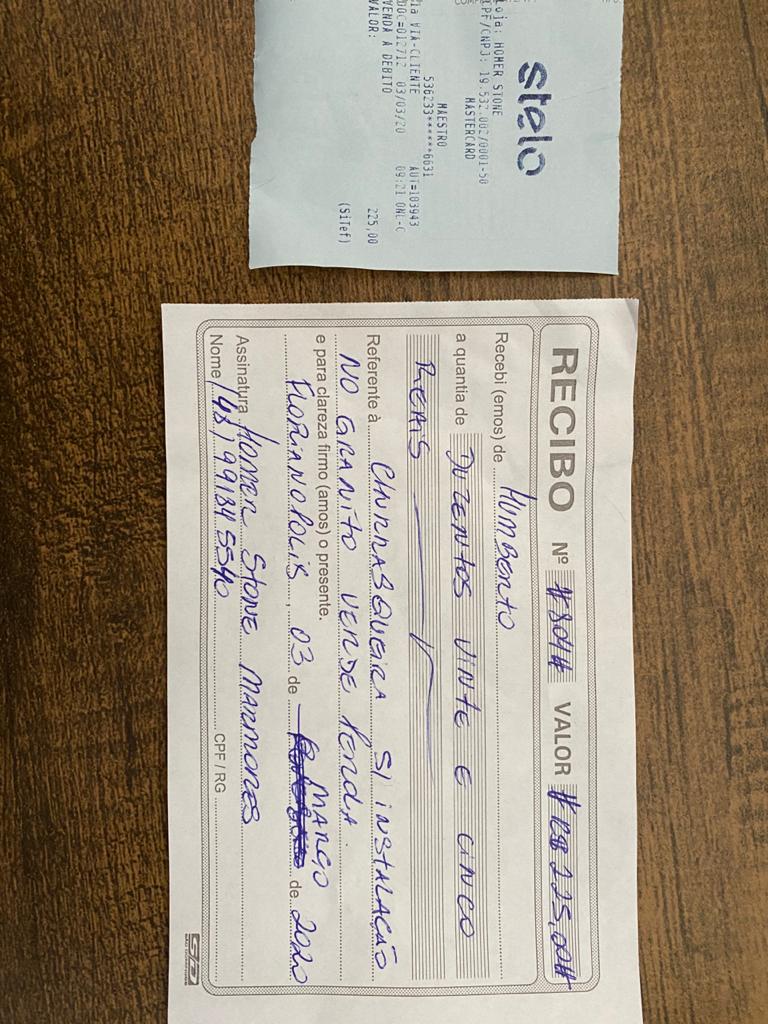 stelo
Loja: HOMER STONE
CPF/CNPJ: 19.532.002/0001-50
MASTERCARD
MAESTRO
536233******6631
VIA-CLIENTE AUT=103943
DOC=012712 03/03/20 09:21 ONL-C
VENDA A DEBITO
VALOR: 225,00
(SiTef)
RECIBO Nº #804# VALOR #R$ 225,00#
Recebi (emos) de HUMBERTO
a quantia de DUZENTOS VINTE E CINCO
REAIS
Referente à CHURRASQUEIRA S/ INSTALAÇÃO
NO GRANITO VERDE PEROLA.
e para clareza firmo (amos) o presente.
FLORIANOPOLIS, 03 de MARÇO de 2020
Assinatura HOMER STONE MARMORES
Nome (48) 99134 5540 CPF / RG